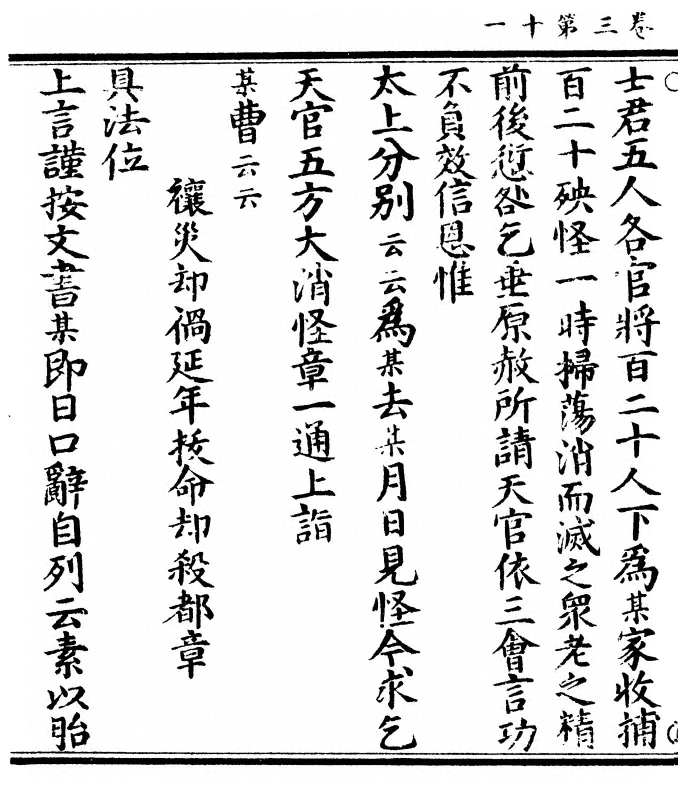 卷三第十一
士君五人各官將百二十人下爲某家收捕
百二十殃怪一時掃蕩消而滅之衆老之精
前後愆咎乞垂原赦所請天官依三會言功
不負效信恩惟
太上分別云云爲某去某月日見怪今求乞
天官五方大消怪章一通上詣
某曹云云
禳災却禍延年拔命却殺都章
具法位
上言謹按文書某即日口辭自列云素以胎